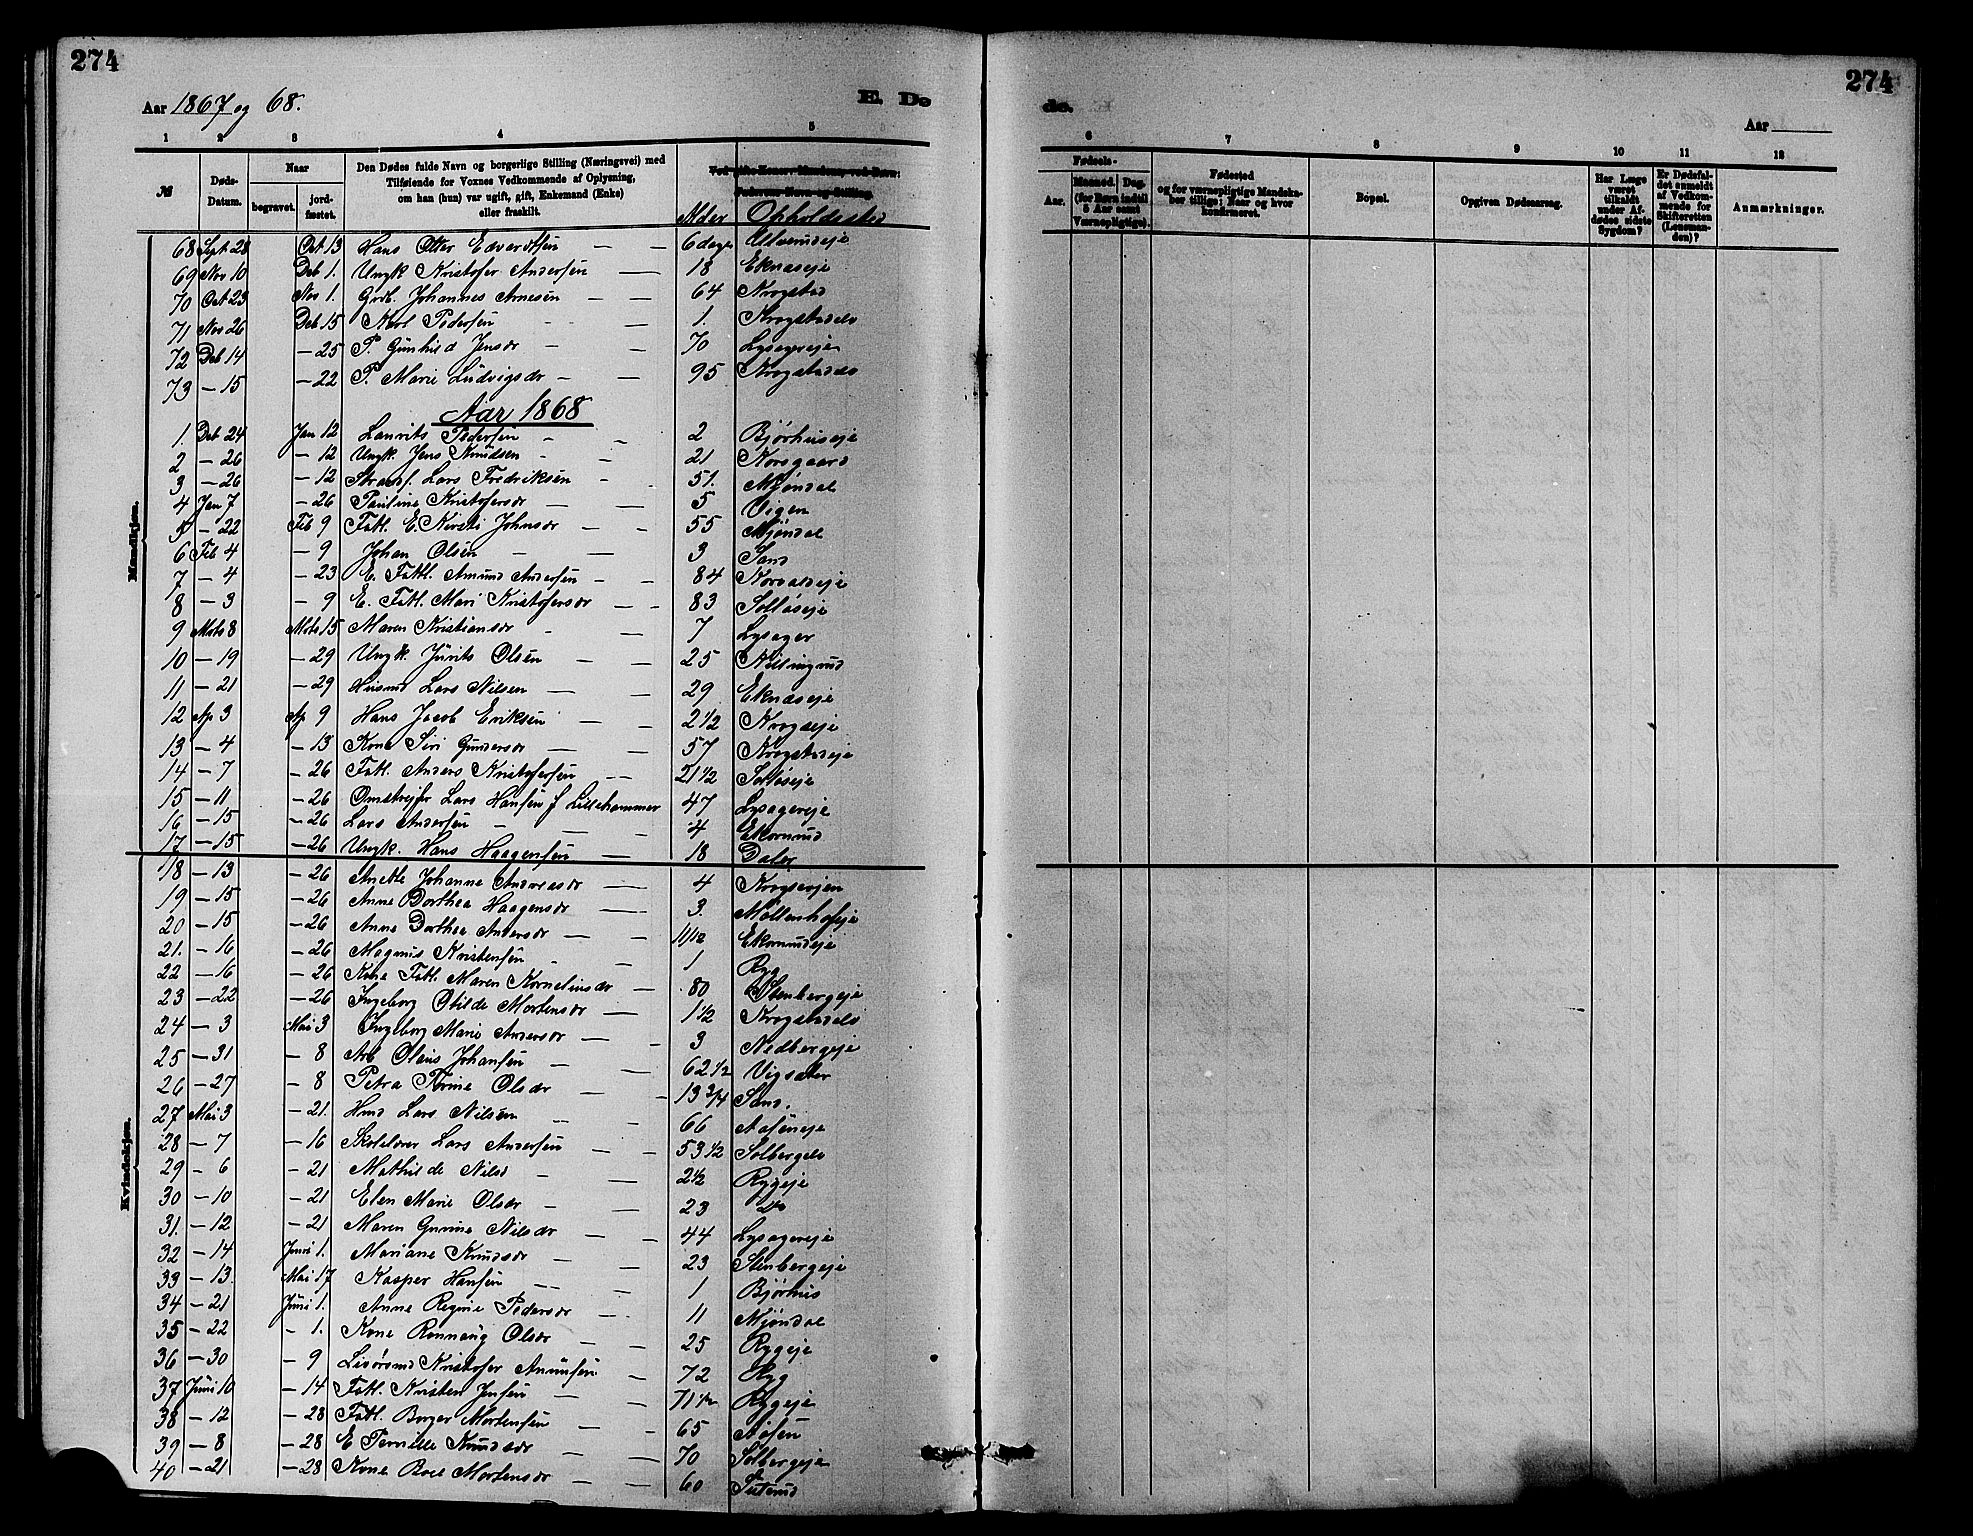 274
274
Aar 1867 og 68.
E. Dø
de.
Aar
1 2 3 4 5
6 7 8 9 10 11 12
№
Døds-Datum.
Naar
begravet.
jord-fæstet.
Den Dødes fulde Navn og borgerlige Stilling (Næringsvei) med
Tilføiende for Voxnes Vedkommende af Oplysning,
om han (hun) var ugift, gift, Enkemand (Enke)
eller fraskilt.
Alder
Opholdssted
Fødsels-
Aar.
Maaned. Dag.
(for Børn indtil
5 Aar samt
Værnepligtige).
Fødested
og for værnepligtige Mandska-
ber tillige; Naar og hvor
konfirmeret.
Bopæl.
Opgiven Dødsaarsag.
Har Læge
været
tilkaldt
under Af-
dødes sidste
Sygdom?
Er Dødsfal-
det anmeldt
af Vedkom-
mende for
Skifteretten
(Lensman-
den)?
Anmærkninger.
Mandkjøn.
68 Sept 28 Oct 13 Hans Otter Edvardsen — — 6 dage
69 Nov 10 Deb 1. Ungk Kristofer Andersen — 18 Eknæseje
70 Oct 23 Nov 1. Grdb. Johannes Arnesen — — 64 Krogstad
71 Nov 26 Deb 15 Karl Pedersen — 1. Krogstadeie
72 Deb 14 — 25 P. Gunhild Jensdr — — 70 Lysagereje
73 — 15 — 22 P. Marie Ludvigsdr — — 95 Krogstadeie
Aar 1868
1. Deb 24 Jan 12 Laurits Pedersen — — 2 Bjørhuseje
2 — 26 — 12 Ungk. Jens Knudsen — 21 Korsgaard
3 — 26 — 12 Lars Fredriksen — 51. Mjøndal
4 Jan 7 — 26 Pauline Kristofersdr — — 5 Vigen
5 — 22 Feb 9 Fattl. E. Kirsti Johnsdr — — 55 Mjøndal
6 Feb 4 — 9 Johan Olsen — — 3 Sand
7 — 4 — 23 E. Fattl. Amund Andersen — — 84
8 — 3 — 9 E. Fattl. Mari Kristofersdr — — 83 Solløseje
9 Mots 8 Mots 15 Maren Kristiansdr — — 7 Lysager
10 — 19 — 29 Ungk. Jürits Olsen — — 25 Killingrud
11 — 21 — 29 Husmd Lars Nilsen — — 29 Eknæseje
12 Ap 3 Ap 9 Hans Jacob Eriksen — — 2 1/2 Krogseje
13 — 4 — 13 Kone Siri Gundersdr — — 57 Krogstadeje
14 — 7 — 26 Fattl. Anders Kristofersen — — 21 1/2 Solløseje
15 — 11 — 26 Omstrejfer Lars Hansen f Lillehammer 47 Lysagereje
16 — 15 — 26 Lars Andersen — — 4 Ekornrud
17 — 15 — 26 Ungk. Hans Haagensen — 18 Daler
Kvindekjøn.
18 — 13 — 26 Anette Johanne Andreasdr — 4 Krogsvejen
19 — 15 — 26 Anne Dorthea Haagensdr — 3. Møllenhofeje
20 — 15 — 26 Anne Dorthea Andersdr — — 11/12 Ekornrudeje
21. — 16 — 26 Magnus Kristensen — — 1 Ryg
22 — 16 — 26 Kone Fattl. Maren Kornelinsdr — 80 Stenbergeje
23 — 22 — 26 Ingeborg Otilde Mortensdr — 1 1/2 Krogstadeie
24 — 3 Mai 3 Ingeborg Marie Andersdr — — 3 Nedbergeje
25 — 31 — 8 Arb Olaus Johansen — — 62 1/2 Vigsæter
26 — 27 — 8 Petra Trine Olsdr — — 13 3/4 Sand.
27 Mai 3 — 21. Hmd Lars Nilsen — — 66 Aaseneje
28 — 7 — 16 Skolelærer Lars Andersen — 53 1/2 Solbergeie
29 — 6 — 21 Mathilde Nilsd — — 2 1/2 Rygeje
30 — 10 — 21 Elen Marie Olsdr — — 23 Do
31. — 12 — 21 Maren Gurine Nilsdr — — 44 Lysagereje
32 — 14 Juni 1. Mariane Knudsdr — — 23 Stenbergeje
33 — 13. Mai 17 Kasper Hansen — — 1 Bjørhus
34 — 21 Juni 1. Anne Regine Pedersdr — — 11 Mjøndal
35 — 22 — 1. Kone Rannaug Olsdr — — 25 Rygeje
36 — 30 — 9 Kristofer Amundsen — 72 Ryg
37 Juni 10 — 14 Fattl. Kristen Jensen — — 71 1/2 Rygeje
38 — 12 — 28 Fattl. Borger Mortensen — — 65 Aasen
39 — 8 — 28 E Pernille Knudsdr — — 70 Solbergeje
40 — 21 — 28 Kone Boel Mortensdr — — 60